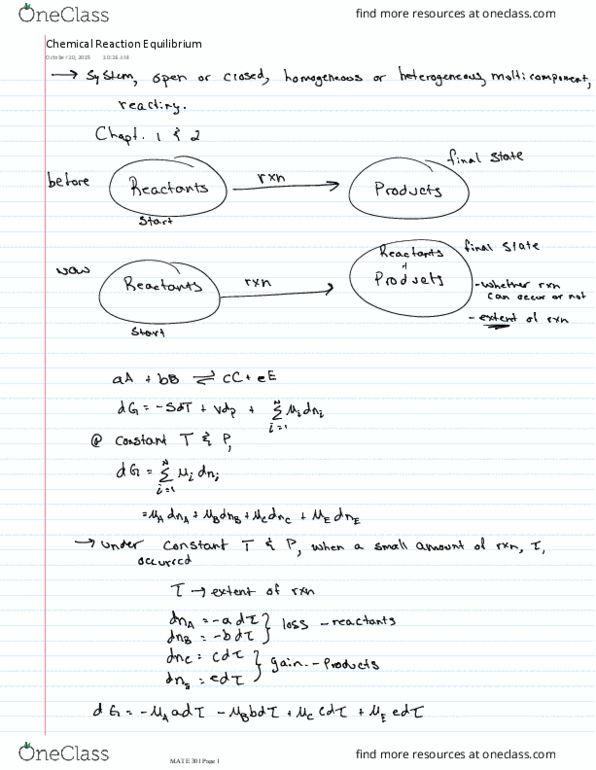 OneClass
find more resources at oneclass.com
Chemical Reaction Equilibrium
October 20, 2015 10:26 AM
→ System, open or closed, homogeneous or heterogeneous, multicomponent,
reacting.
Chapt. 1 & 2
before
Reactants
rxn
Products
final state
Start
now
Reactants
rxn
Reactants
+
Products
final state
- whether rxn
can occur or not
- extent of rxn
Start
aA + bB ⇌ cC + eE
dG = -SdT + Vdp + Σ μᵢdnᵢ
N
i=1
@ constant T & P,
dG = Σ μᵢ dnᵢ
N
i=1
= μ_A dn_A + μ_B dn_B + μ_C dn_C + μ_E dn_E
→ under constant T & P, when a small amount of rxn, τ,
occurred
τ → extent of rxn
dn_A = -a dτ } loss - reactants
dn_B = -b dτ
dn_C = c dτ } gain - Products
= e dτ
dG = -μ_A a dτ - μ_B b dτ + μ_C c dτ + μ_E e dτ
MATE 301 Page 1
OneClass
find more resources at oneclass.com